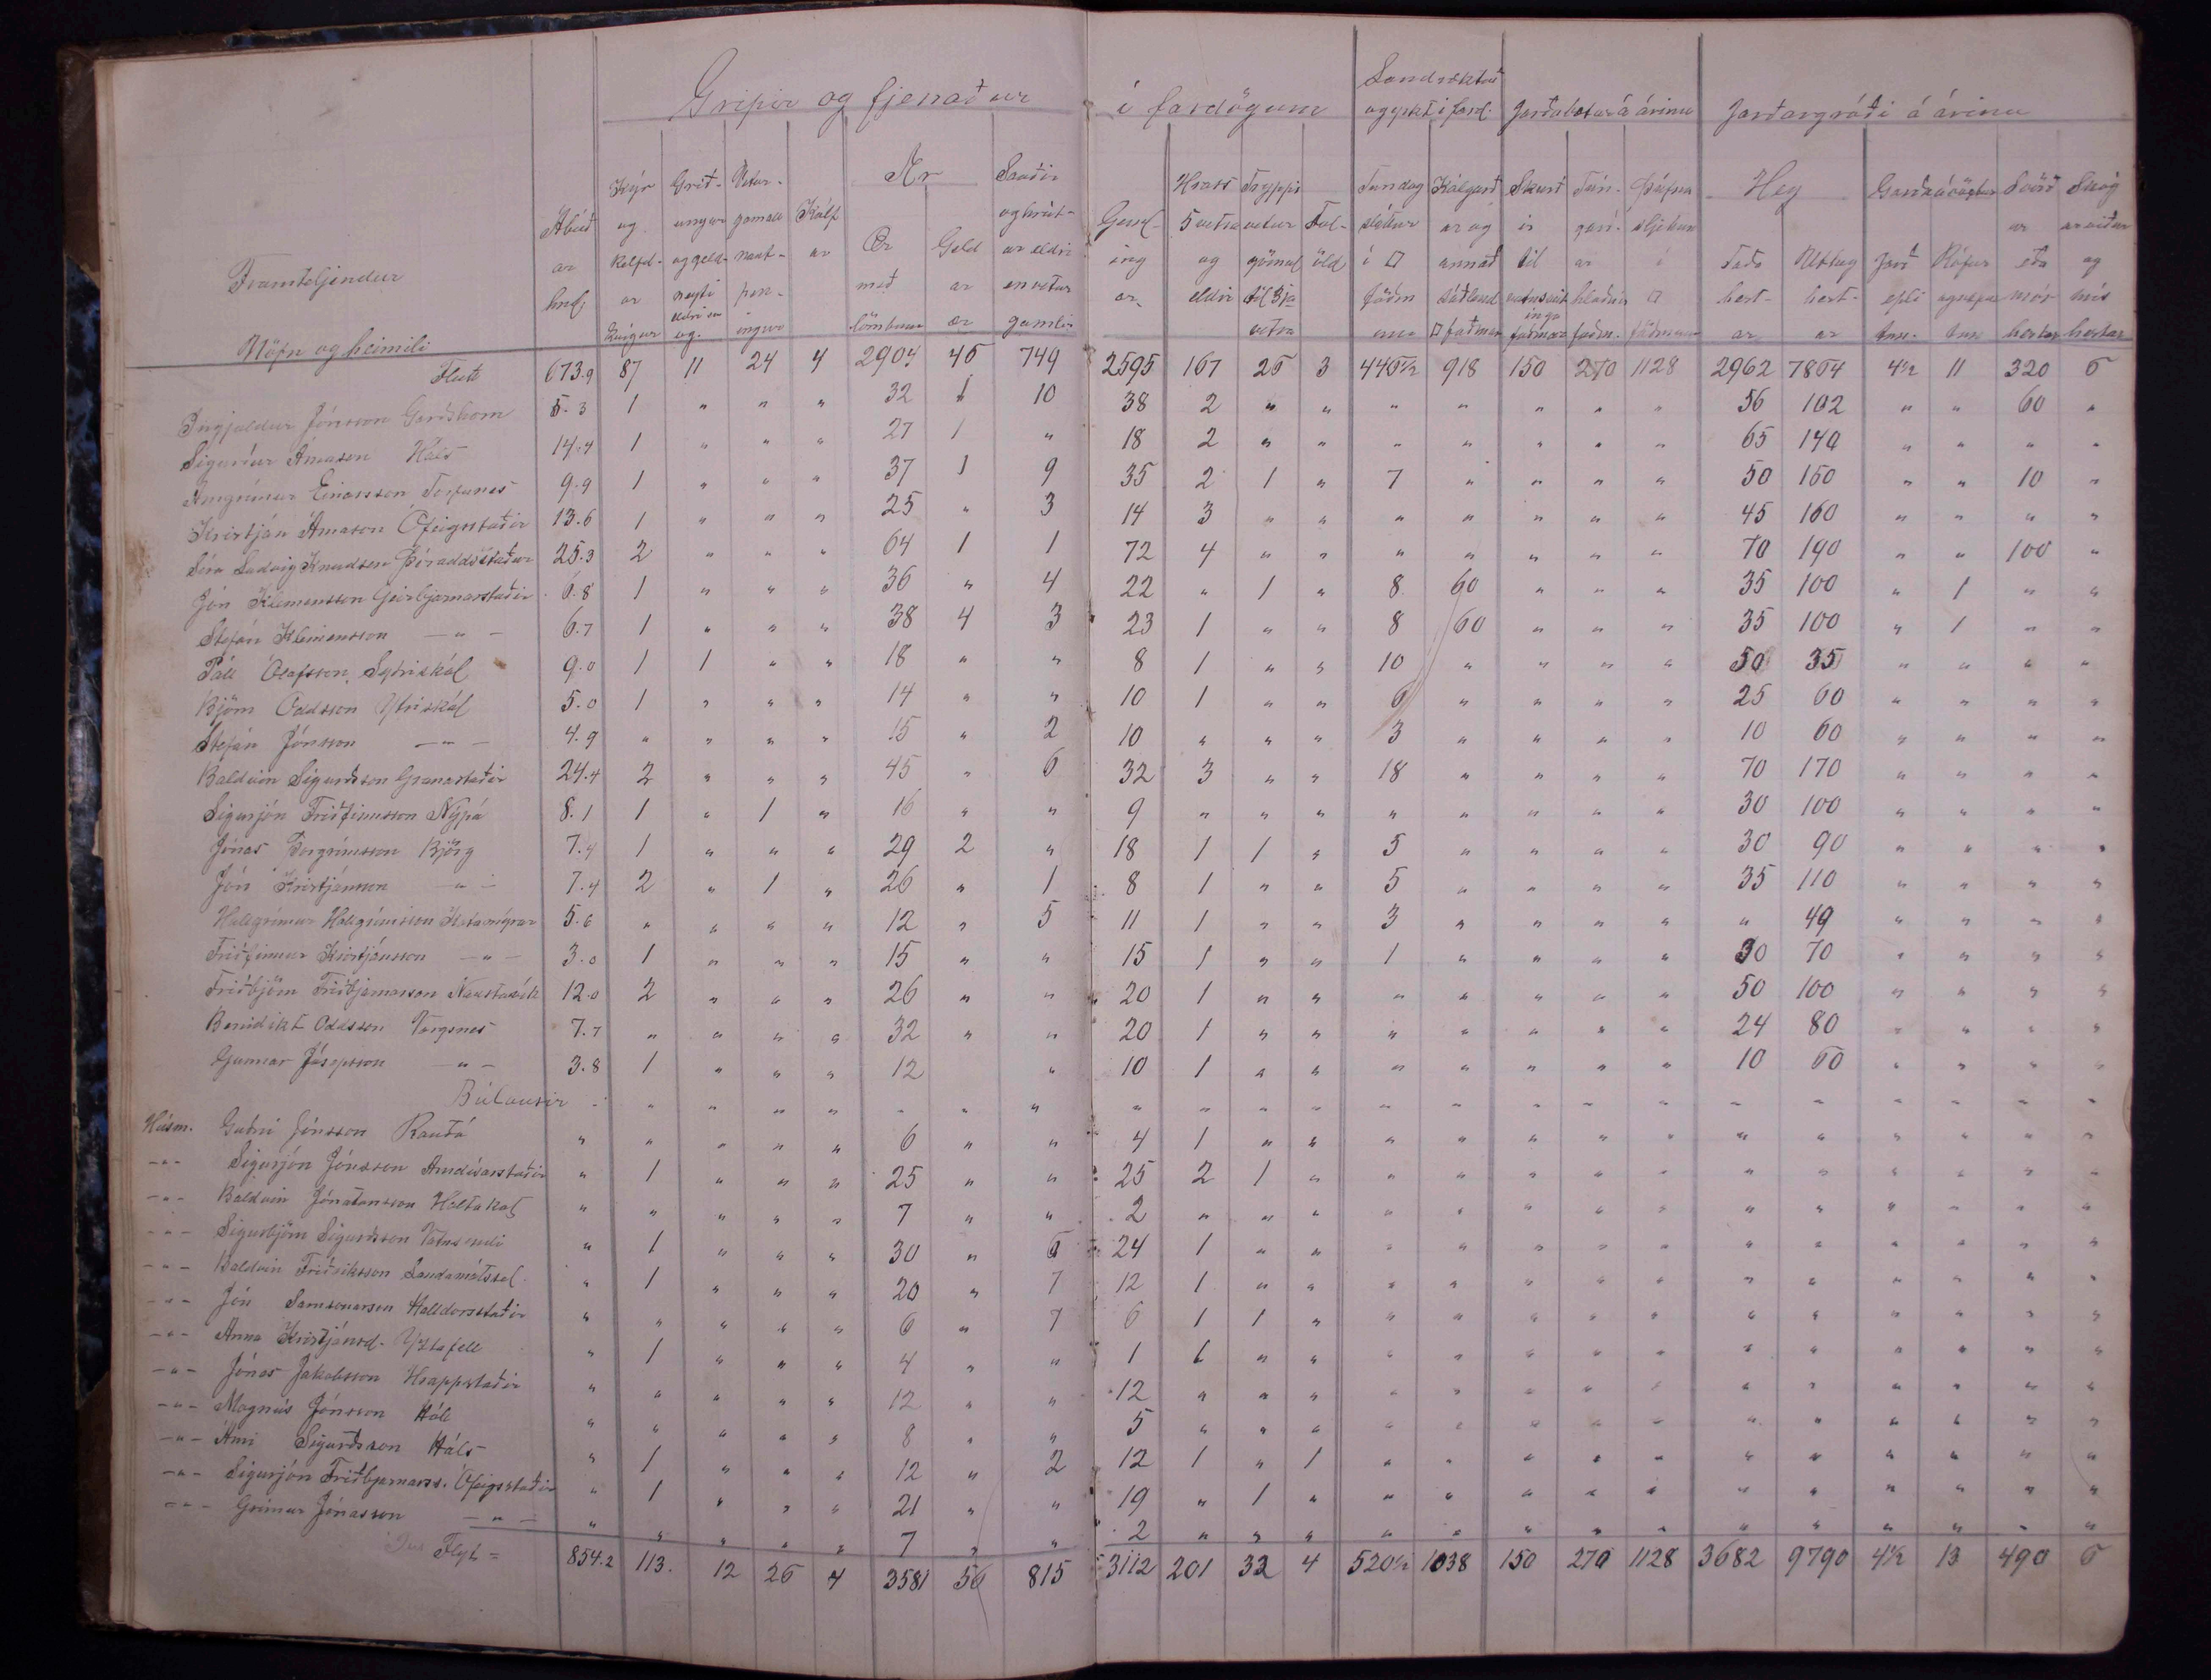 Gripir og fjenaður í fardögum
Landræktað og yrkt í fard. Jarðabætur á árinu Jarðargróði á árinu
Framteljendur
Nöfn og heimili
Ábúð ar hnd.
Kýr og kelfd ar kvígur
Grið- ungar og geld- neyti eldri en vg.
Vetur- gamall naut- pen- ingur
Kálf ar
Ær
Ær með lömbum
Geld ar ær
Sauðir og hrút- ar eldri en vetur gamlir
Geml- ing ar
Hross 5 vetra og eldri
Tryppi vetur gömul til 3ja vetra
Fol- öld
Tún og sléttur í □ föðm um
Kálgarð ar og annað sáðland □ faðmar
Skurð ir til vatnsveit inga faðmar
Tún- garð- ar hlaðnir faðm.
Þúfna sljettun í □ föðmum
Hey
Taða hest- ar
Úthey hest- ar
Garðaávöxtur
Jarð epli tnr.
Rófur og næpur tnr.
Svörð ur eða mór hestar
Skóg arviður og hrís hestar
Flutt 673.9 87 11 24 4 2904 46 749 2595 167 26 3 446½ 918 150 270 1128 2962 7864 4½ 11 320 6
Ingjaldur Jónsson Garðshorn 5.3 1 " " " 32 1 10 38 2 " " " " " " " 56 102 " " 60 "
Sigurður Árnason Háls 14.4 1 " " " 27 1 " 18 2 " " " " " " " 65 140 " " " "
Arngrímur Einarsson Torfunes 9.9 1 " " " 37 1 9 35 2 1 " 7 " " " " 50 150 " " 10 "
Kristján Árnason Ófeigsstaðir 13.6 1 " " " 25 " 3 14 3 " " " " " " " 45 160 " " " "
Síra Ludvig Knudsen Þóroddsstaður 25.3 2 " " " 64 1 1 72 4 " " " " " " " 70 190 " " 100 "
Jón Klemensson Geirbjarnarstaðir 6.8 1 " " " 36 " 4 22 " 1 " 8 60 " " " 35 100 " 1 " "
Stefán Klemensson — " — 6.7 1 " " " 38 4 3 23 1 " " 8 60 " " " 35 100 " 1 " "
Páll Ólafsson Syðriskál 9.0 1 1 " " 18 " " 8 1 " " 10 " " " " 50 35 " " " "
Björn Oddsson Ytriskál 5.0 1 " " " 14 " " 10 1 " " 6 " " " " 25 60 " " " "
Stefán Jónsson — " — 4.9 " " " " 15 " 2 10 " " " 3 " " " " 10 60 " " " "
Baldvin Sigurðsson Granastaðir 24.4 2 " " " 45 " 6 32 3 " " 18 " " " " 70 170 " " " "
Sigurjón Friðfinnsson Nýpá 8.1 1 " 1 " 16 " " 9 " " " " " " " " 30 100 " " " "
Jónas Þorgrímsson Björg 7.4 1 " " " 29 2 " 18 1 1 " 5 " " " " 30 90 " " " "
Jón Kristjánsson — " — 7.4 2 " 1 " 26 " 1 8 1 " " 5 " " " " 35 110 " " " "
Hallgrímur Hallgrímsson Kotamýrar 5.6 " " " " 12 " 5 11 1 " " 3 " " " " " 49 " " " "
Friðfinnur Kristjánsson — " — 3.0 1 " " " 15 " " 15 1 " " 1 " " " " 30 70 " " " "
Friðbjörn Friðbjarnarson Naustavík 12.0 2 " " " 26 " " 20 1 " " " " " " " 50 100 " " " "
Benidikt Oddsson Vargsnes 7.7 " " " " 32 " " 20 1 " " " " " " " 24 80 " " " "
Gunnar Jósepsson — " — 3.8 1 " " " 12 " 10 1 " " " " " " " 10 60 " " " "
Búlausir " " " " " " " " " " " " " " " " " " " " " "
Húsm. Guðni Jónsson Rauðá " " " " " 6 " " 4 1 " " " " " " " " " " " " "
-"- Sigurjón Jónsson Arndísarstaðir " 1 " " " 25 " " 25 2 1 " " " " " " " " " " " "
-"- Baldvin Jónatansson Holtakot " " " " " 7 " " 2 " " " " " " " " " " " " " "
-"- Sigurbjörn Sigurðsson Vatnsendi " 1 " " " 30 " 6 24 1 " " " " " " " " " " " " "
-"- Baldvin Friðriksson Landamótssel " 1 " " " 20 " 7 12 1 " " " " " " " " " " " " "
-"- Jón Samsonarson Halldorsstaðir " " " " " 6 " 7 6 1 1 " " " " " " " " " " " "
-"- Anna Kristjánsd. Yztafell " 1 " " " 4 " " 1 1 " " " " " " " " " " " " "
-"- Jónas Jakobsson Hrappstaðir " " " " " 12 " " 12 " " " " " " " " " " " " " "
-"- Magnús Jónsson Hóll " " " " " 8 " " 5 " " " " " " " " " " " " " "
-"- Árni Sigurðsson Háls " 1 " " " 12 " 2 12 1 " 1 " " " " " " " " " " "
-"- Sigurjón Friðbjarnars. Ófeigsstaðir " 1 " " " 21 " " 19 " 1 " " " " " " " " " " " "
-"- Grímur Jónasson — " — " " " " " 7 " " 2 " " " " " " " " " " " " " "
Flyt = 854.2 113. 12 26 4 3581 56 815 3112 201 32 4 520½ 1038 150 270 1128 3682 9790 4½ 13 490 6